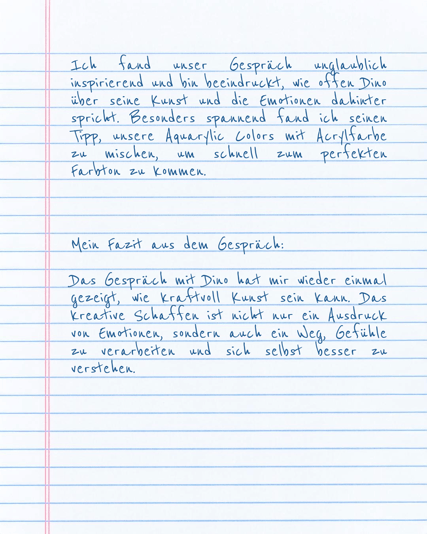 Ich fand unser Gespräch unglaublich
inspirierend und bin beeindruckt, wie offen Dino
über seine Kunst und die Emotionen dahinter
spricht. Besonders spannend fand ich seinen
Tipp, unsere Aquarylic Colors mit Acrylfarbe
zu mischen, um schnell zum perfekten
Farbton zu kommen.
Mein Fazit aus dem Gespräch:
Das Gespräch mit Dino hat mir wieder einmal
gezeigt, wie kraftvoll Kunst sein kann. Das
kreative Schaffen ist nicht nur ein Ausdruck
von Emotionen, sondern auch ein Weg, Gefühle
zu verarbeiten und sich selbst besser zu
verstehen.